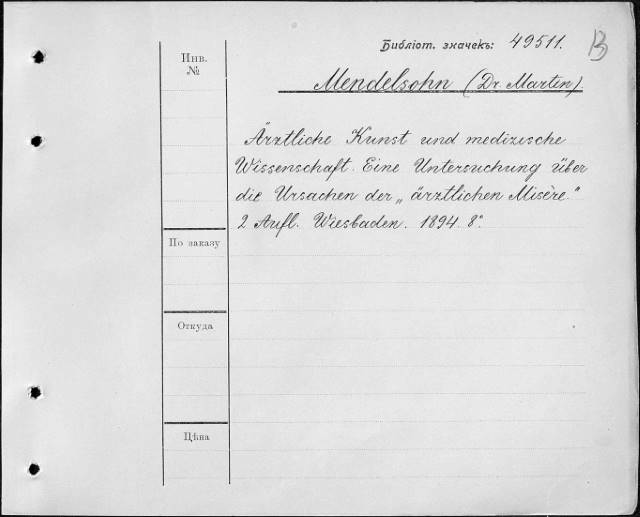 Библіот. значекъ: 49511. B
Инв. №
Mendelsohn (Dr. Martin).
Ärztliche Kunst und medizische
Wissenschaft. Eine Untersuchung über
die Ursachen der „ärztlichen Misère."
2 Aufl. Wiesbaden. 1894. 8°.
По заказу
Откуда
Цѣна